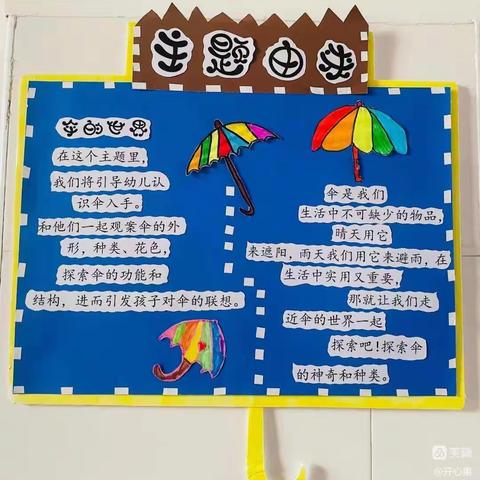 主题由来
伞的世界
在这个主题里，
我们将引导幼儿认
识伞入手。
和他们一起观案伞的外
形，种类、花色，
探索伞的功能和
结构，进而引发孩子对伞的联想。
伞是我们
生活中不可缺少的物品，
晴天用它
来遮阳，雨天我们用它来避雨，在
生活中实用又重要，
那就让我们走
近伞的世界一起
探索吧！探索伞
的神奇和种类。
美篇
@开心果